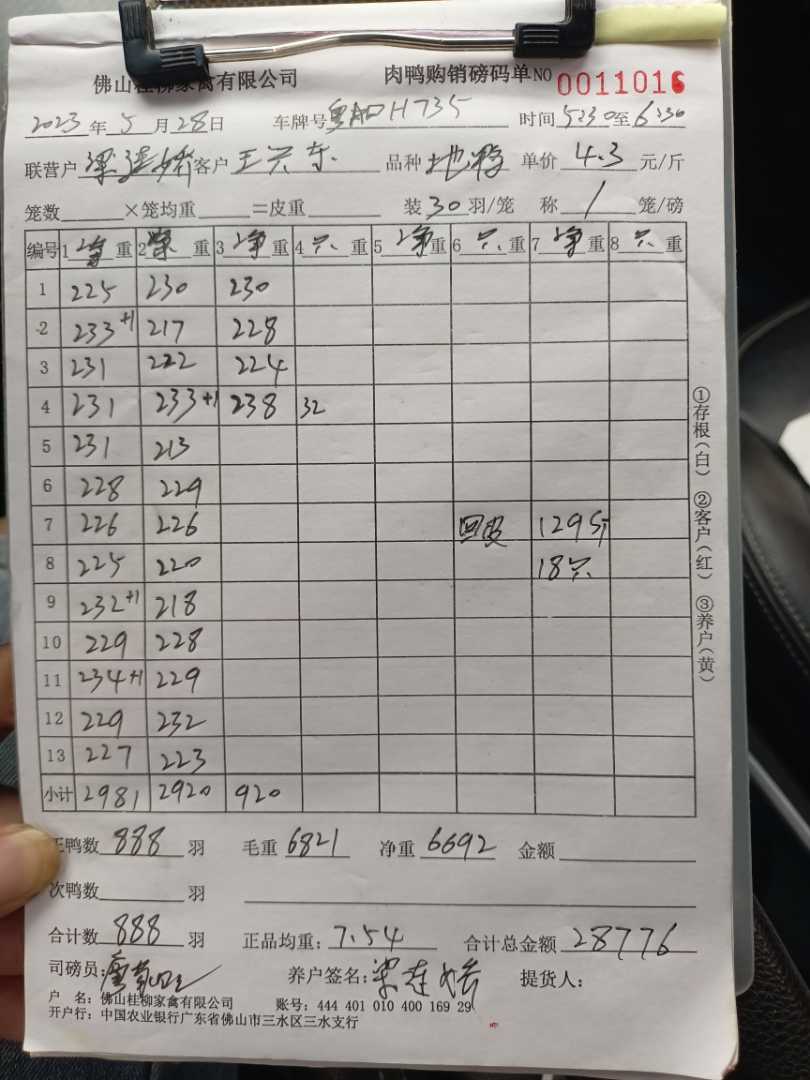 佛山桂柳家禽有限公司 肉鸭购销磅码单 NO 0011016
2023年5月28日 车牌号 H735 时间5:30至6:30
联营户 客户 王兴东 品种 单价 4.3 元/斤
笼数 ×笼均重 =皮重 装30羽/笼 称 1 笼/磅
编号 1 净重 2 重 3 净重 4 只重 5 净重 6 只重 7 净重 8 只重
1 225 230 230
2 233+1 217 228
3 231 222 224
4 231 233+1 238 32
5 231 213
6 228 229
7 226 226 回皮 129斤
8 225 220 18只
9 232+1 218
10 229 228
11 234+1 229
12 229 232
13 227 223
小计 2981 2920 920
正鸭数 888 羽 毛重 6821 净重 6692 金额
次鸭数 羽
合计数 888 羽 正品均重: 7.54 合计总金额 28776
司磅员: 养户签名: 提货人:
户 名: 佛山桂柳家禽有限公司 账号: 444 401 010 400 169 29
开户行: 中国农业银行广东省佛山市三水区三水支行
①存根(白) ②客户(红) ③养户(黄)